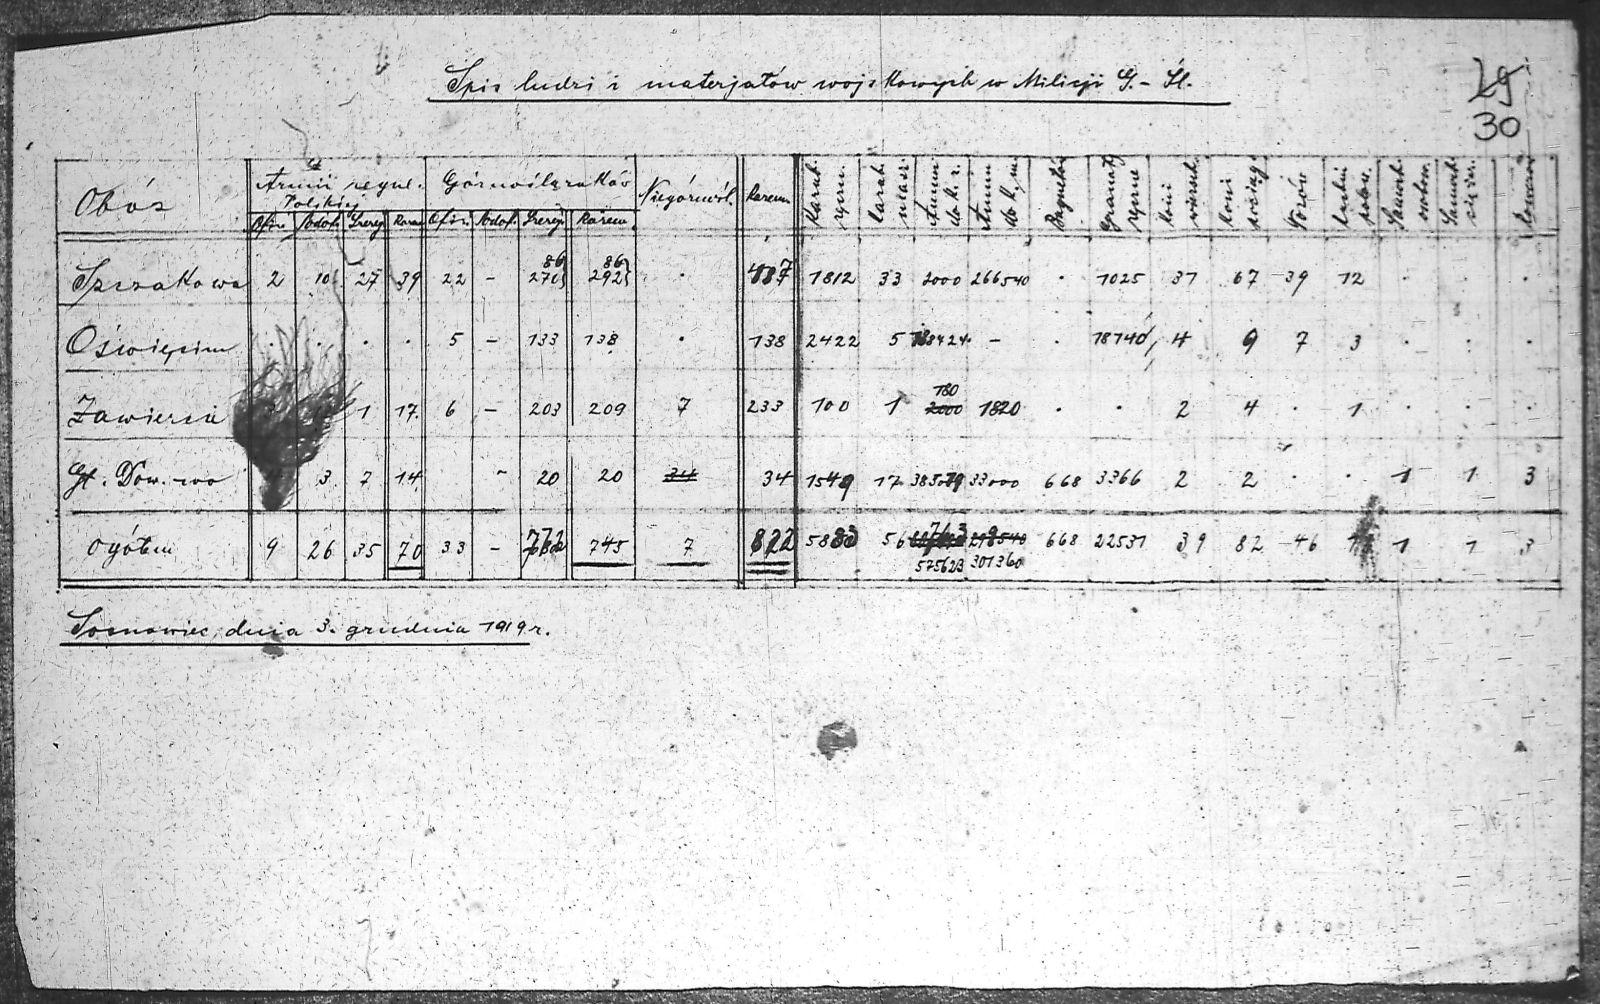 Spis ludzi i materjałów wojskowych w Milicji G.-Śl.
29
30
Obóz | Armii regul. Polskiej | Górnoślązaków | Niegórnośl. | Razem | Karab. ręczn. | karab. masz. | Amun. do k. r. | Amun. do k. m. | Bagnetów | Granaty ręczne | koni wierzch. | koni pociąg. | Wozów | kuchni polow. | Samoch. osobow. | Samoch. ciężar.
Ofic. | Podof. | Szereg. | Razem | Ofic. | Podof. | Szereg. | Razem
86 86
Szczakowa 2 10 27 39 22 - 270 292 · 417 1812 33 2000 266540 · 1025 31 67 39 12 · · ·
Oświęcim · · · · 5 - 133 138 · 138 2422 5 - · 18140 4 9 7 3 · · ·
180
Zawiercie 1 17 6 - 203 209 7 233 100 1 2000 1820 · · 2 4 · 1 · · ·
Gł. Dow-wo 3 7 14 - 20 20 34 34 1549 17 33000 668 3366 2 2 · · 1 1 3
Ogółem 9 26 35 70 33 - 745 7 822 5883 56 298540 668 22531 39 82 46 1 1 3
575623 301360
Sosnowiec, dnia 3. grudnia 1919 r.